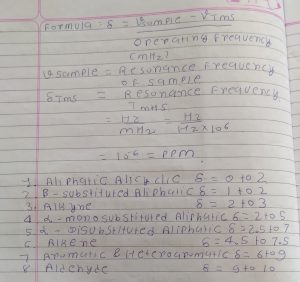 Formula: δ = νsample - νTms
Operating Frequency
(mHz)
νsample = Resonance Frequency
of sample
δTms = Resonance Frequency
Tms
= Hz / mHz = Hz / Hz×10⁶
= 10⁻⁶ = PPm
1. Aliphatic Alicyclic δ = 0 to 2
2. β-substituted Aliphatic δ = 1 to 2
3. Alkyne δ = 2 to 3
4. α-monosubstituted Aliphatic δ = 2 to 5
5. α-Disubstituted Aliphatic δ = 2.5 to 7
6. Alkene δ = 4.5 to 7.5
7. Aromatic & Heteroaromatic δ = 6 to 9
8. Aldehyde δ = 9 to 10